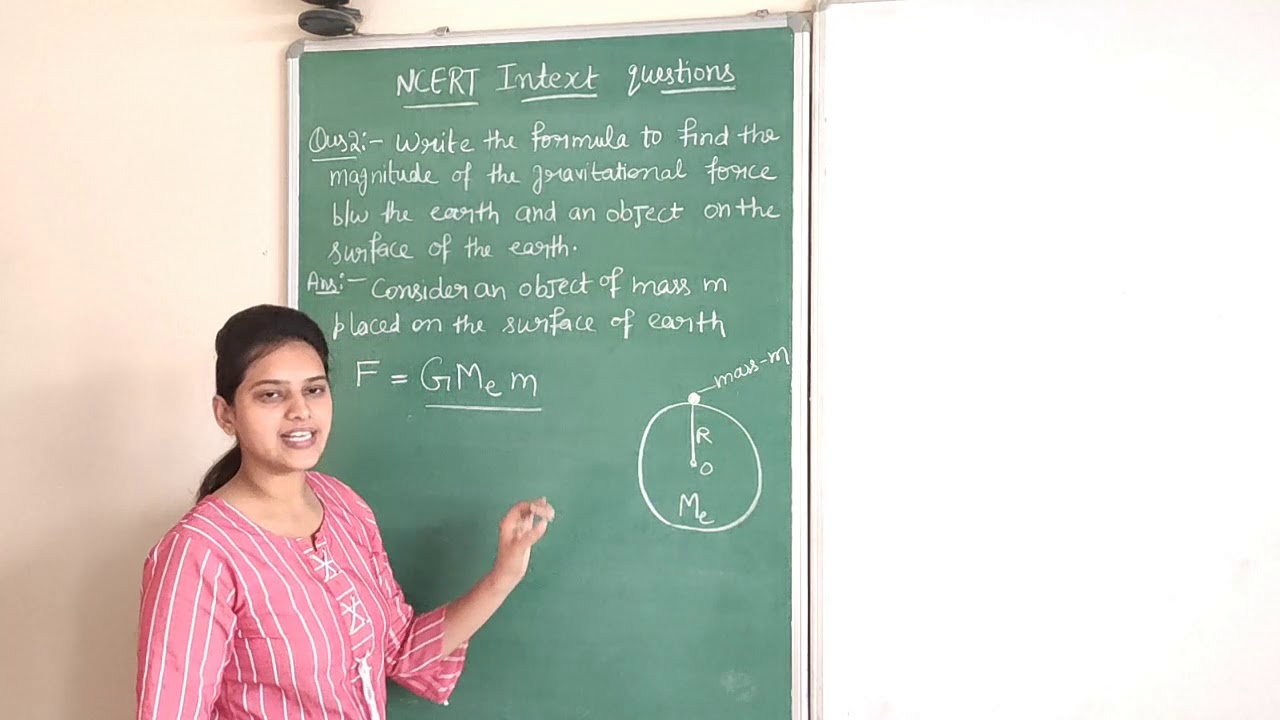 NCERT Intext questions
Ques2:- Write the formula to find the
magnitude of the gravitational force
b/w the earth and an object on the
surface of the earth.
Ans:- Consider an object of mass m
placed on the surface of earth
F = GMe m
mass-m
R
O
Me